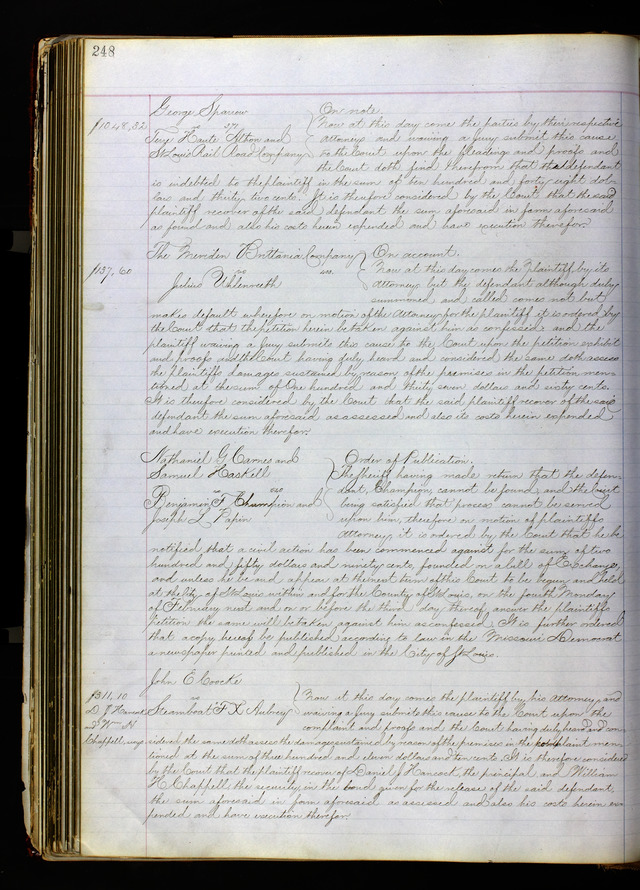 248
George Sparrow } On note.
$1048,32 vs 371 } Now at this day come the parties by their respective
Terre Haute Alton and } attorneys and waiving a jury submit this cause
St Louis Rail Road Company } to the Court upon the pleadings and proofs and
the Court doth find therefrom that the defendant
is indebted to the plaintiff in the sum of ten hundred and forty eight dol-
lars and thirty two cents. It is therefore considered by the Court that the said
plaintiff recover of the said defendant the sum aforesaid in form aforesaid
as found and also his costs herein expended and have execution therefor.
The Meriden Brittania Company } On account.
$137,60 vs } Now at this day comes the Plaintiff by its
Julius Uhlenreith } Attorney but the defendant although duly
summoned and called comes not but
makes default wherefore on motion of the Attorney for the plaintiff it is ordered by
the Court that the petition herein be taken against him as confessed and the
plaintiff waiving a Jury submits this cause to the Court upon the petition exhibit
and proofs and the Court having duly heard and considered the same doth assess
the Plaintiffs damages sustained by reason of the premises in the petition men-
tioned at the sum of One hundred and thirty seven dollars and sixty cents.
It is therefore considered by the Court that the said plaintiff recover of the said
defendant the sum aforesaid as assessed and also its costs herein expended
and have execution therefor.
Nathaniel G Carnes and } Order of Publication.
Samuel Haskill } The sheriff having made return that the defen-
vs } dant, Champion, cannot be found, and the Court
Benjamin F Champion and } being satisfied that process cannot be served
Joseph L Papin } upon him, therefore on motion of plaintiffs
Attorney, it is ordered by the Court that he be
notified that a civil action has been commenced against for the sum of two
hundred and fifty dollars and ninety cents, founded on a bill of Exchange,
and unless he be and appear at the next term of this Court to be begun and held
at the City of St Louis within and for the County of St Louis, on the fourth Monday
of February next and on or before the third day thereof, answer the plaintiffs
petition the same will be taken against him as confessed. It is further ordered
that a copy hereof be published according to law in the Missouri Democrat
a newspaper printed and published in the City of St Louis.
John E Coocke
$311,10 vs } Now at this day comes the plaintiff by his Attorney, and
D J Hancock Steamboat F X Aubrey } waiving a Jury submits this cause to the Court upon the
and Wm H complaint and proofs and the Court having duly heard and con-
Chappell, sidered the same doth assess the damages sustained by reason of the premises in the complaint men-
tioned at the sum of three hundred and eleven dollars and ten cents. It is therefore considered
by the Court that the plaintiff recover of Daniel J Hancock, the principal and William
H Chappell the security in the bond given for the release of the said defendant,
the sum aforesaid in form aforesaid as assessed and also his costs herein ex-
pended and have execution therefor.